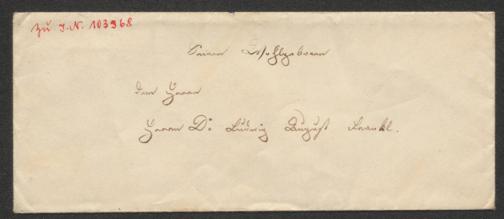 Zu I.N. 103968
Seiner Wohlgeboren
dem Herrn
Herrn Dr Ludwig August Frankl.